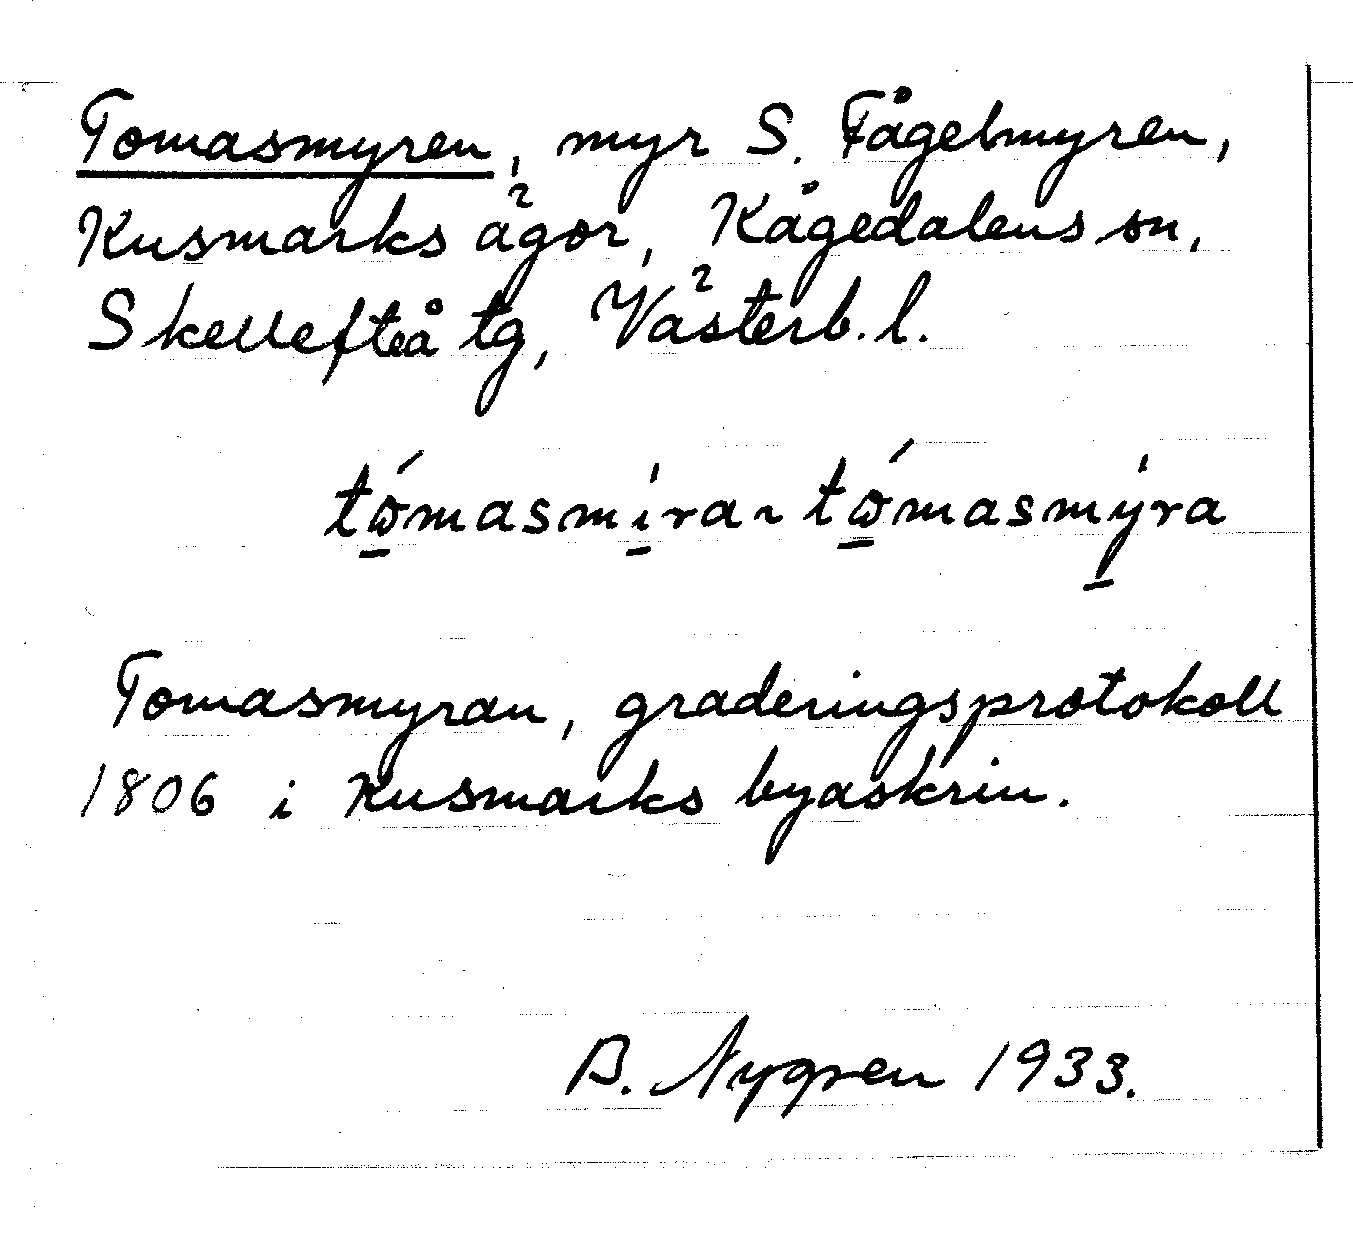 Tomasmyren, myr S. Fågelmyren,
Kusmarks ägor, Kågedalens sn,
Skellefteå tg, Västerb. l.
tώ̱masmi̱̍ra ~ tώ̱masmy̱̍ra
Tomasmyran, graderingsprotokoll
1806 i Kusmarks byaskrin.
B. Nygren 1933.